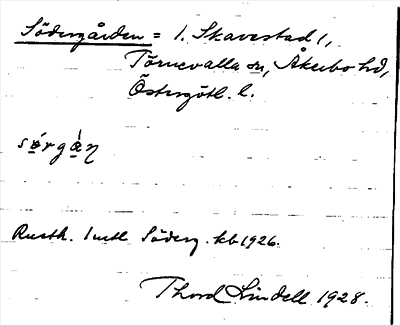 Södergården = 1. Skavestad 1,
Törnevalla sn, Åkerbo hd,
Östergötl. l.
sǿrgàn
Rusth. 1 mtl Söderg. kb 1926.
Thord Lindell 1928.